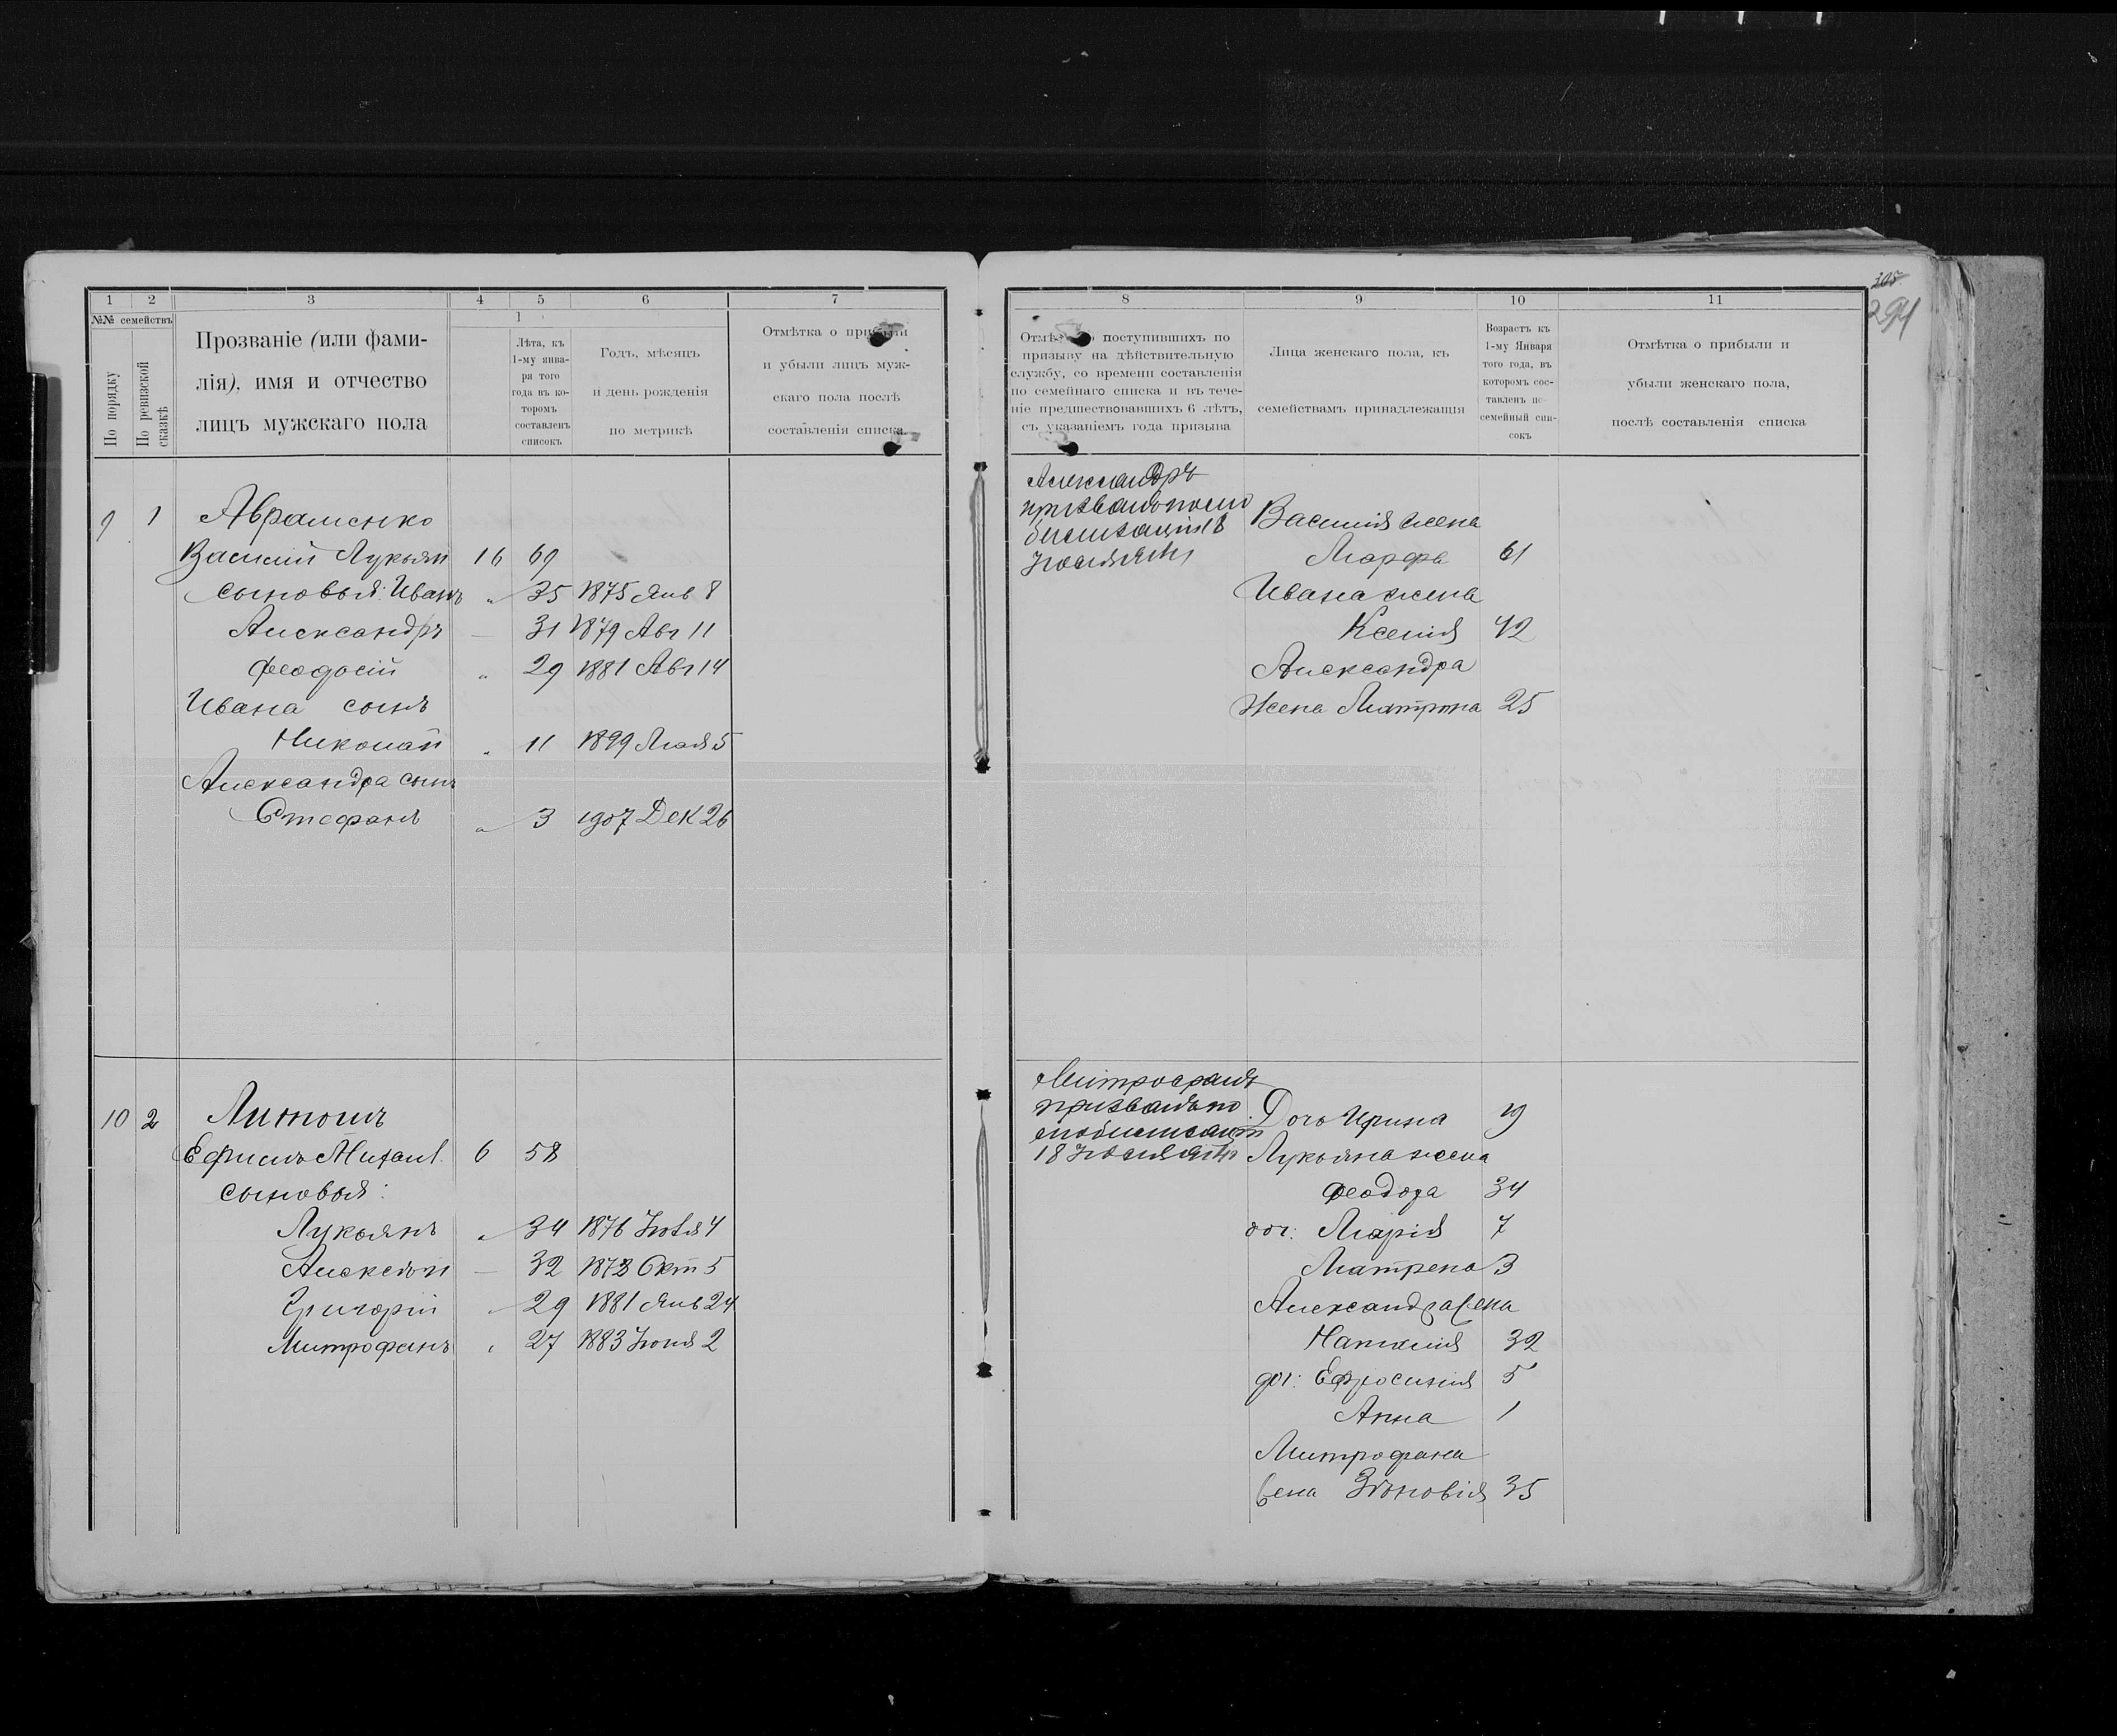 1 2 3 4 5 6 7
№№ семействъ
По порядку
По ревизской сказкѣ
Прозваніе (или фами-
лія), имя и отчество
лицъ мужскаго пола
Лѣта, къ
1-му янва-
ря того
года въ ко-
торомъ
составленъ
списокъ
Годъ, мѣсяцъ
и день рожденія
по метрикѣ
Отмѣтка о прибыли
и убыли лицъ муж-
скаго пола послѣ
составленія списка.
9 1 Авраменко
Василій Лукьян 16 69
сыновья: Иванъ " 35 1875 Янв 8
Александръ — 31 1879 Авг 11
Феодосій " 29 1881 Авг 14
Ивана сынъ
Николай " 11 1899 Мая 5
Александра сынъ
Стефанъ " 3 1907 Дек 26
10 2 Литошъ
Ефимъ Михаил. 6 58
сыновья:
Лукьянъ " 34 1876 Іюля 4
Алексѣй — 32 1878 Окт 5
Григорій " 29 1881 Янв 24
Митрофанъ " 27 1883 Іюня 2
8 9 10 11
305
294
Отмѣтка о поступившихъ по
призыву на дѣйствительную
службу, со времени составленія
по семейнаго списка и въ тече-
ніе предшествовавшихъ 6 лѣтъ,
съ указаніемъ года призыва
Лица женскаго пола, къ
семействамъ принадлежащія
Возрастъ къ
1-му Января
того года, въ
которомъ сос-
тавленъ по-
семейный спи-
сокъ
Отмѣтка о прибыли и
убыли женскаго пола,
послѣ составленія списка
Александръ
призванъ по мо
билизаціи 18
Іюля
Василія жена
Марфа 61
Ивана жена
Ксенія 42
Александра
жена Матрона 25
Митрофанъ
призванъ по
мобилизаціи
18 Іюля
Дочь Ирина 19
Лукьяна жена
Феодора 34
доч: Марія 7
Матрена 3
Александра жена
Наталія 32
доч: Ефросинія 5
Анна 1
Митрофана
жена Зѣновія 35